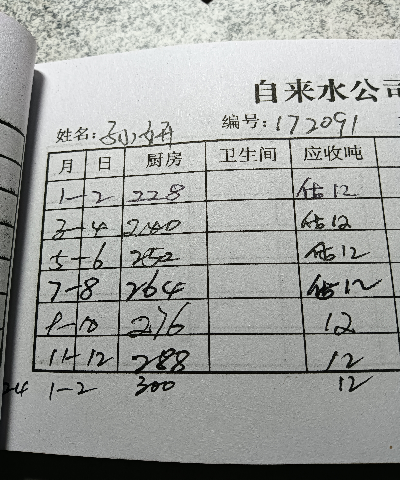 自来水公司
姓名: 编号: 172091
月 日 厨房 卫生间 应收吨
1-2 228 估12
3-4 240 估12
5-6 252 估12
7-8 264 估12
9-10 276 12
11-12 288 12
24 1-2 300 12